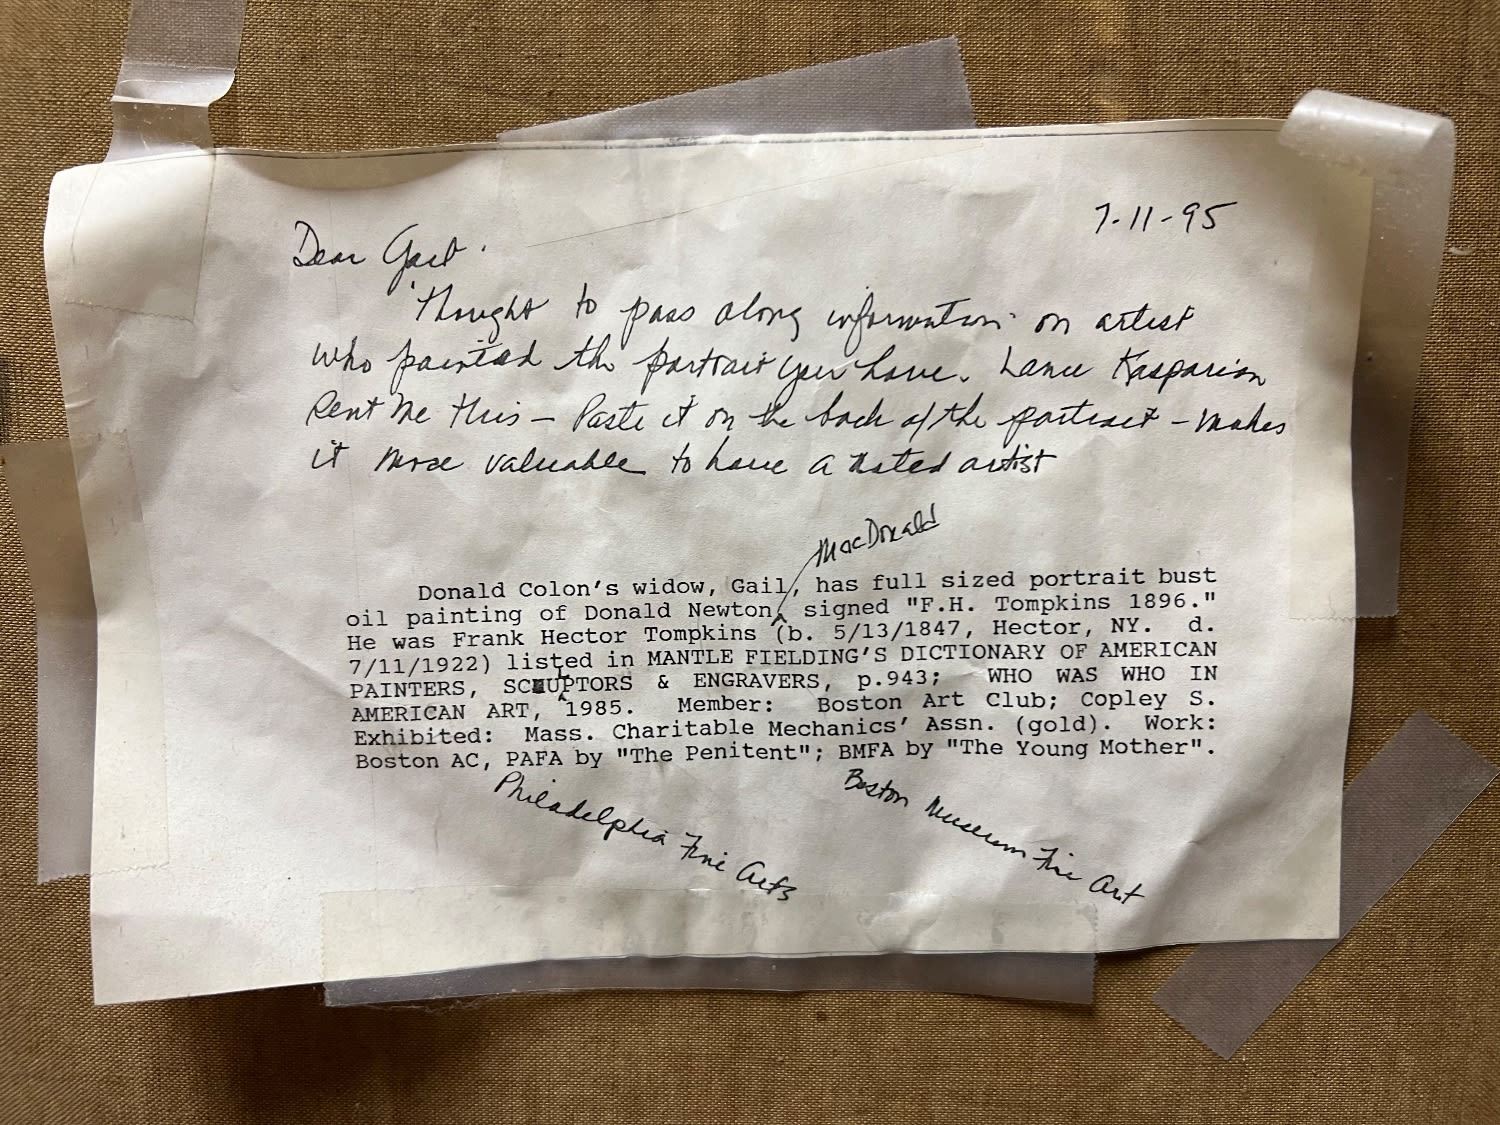 7-11-95
Dear Gail.
Thought to pass along information on artist
who painted the portrait you have. Lance Kasparian
sent me this – Paste it on the back of the portrait – makes
it more valuable to have a noted artist
MacDonald
Donald Colon's widow, Gail, has full sized portrait bust
oil painting of Donald Newton, signed "F.H. Tompkins 1896."
He was Frank Hector Tompkins (b. 5/13/1847, Hector, NY. d.
7/11/1922) listed in MANTLE FIELDING'S DICTIONARY OF AMERICAN
PAINTERS, SCULPTORS & ENGRAVERS, p.943; WHO WAS WHO IN
AMERICAN ART, 1985. Member: Boston Art Club; Copley S.
Exhibited: Mass. Charitable Mechanics' Assn. (gold). Work:
Boston AC, PAFA by "The Penitent"; BMFA by "The Young Mother".
Philadelphia Fine Arts
Boston Museum Fine Art